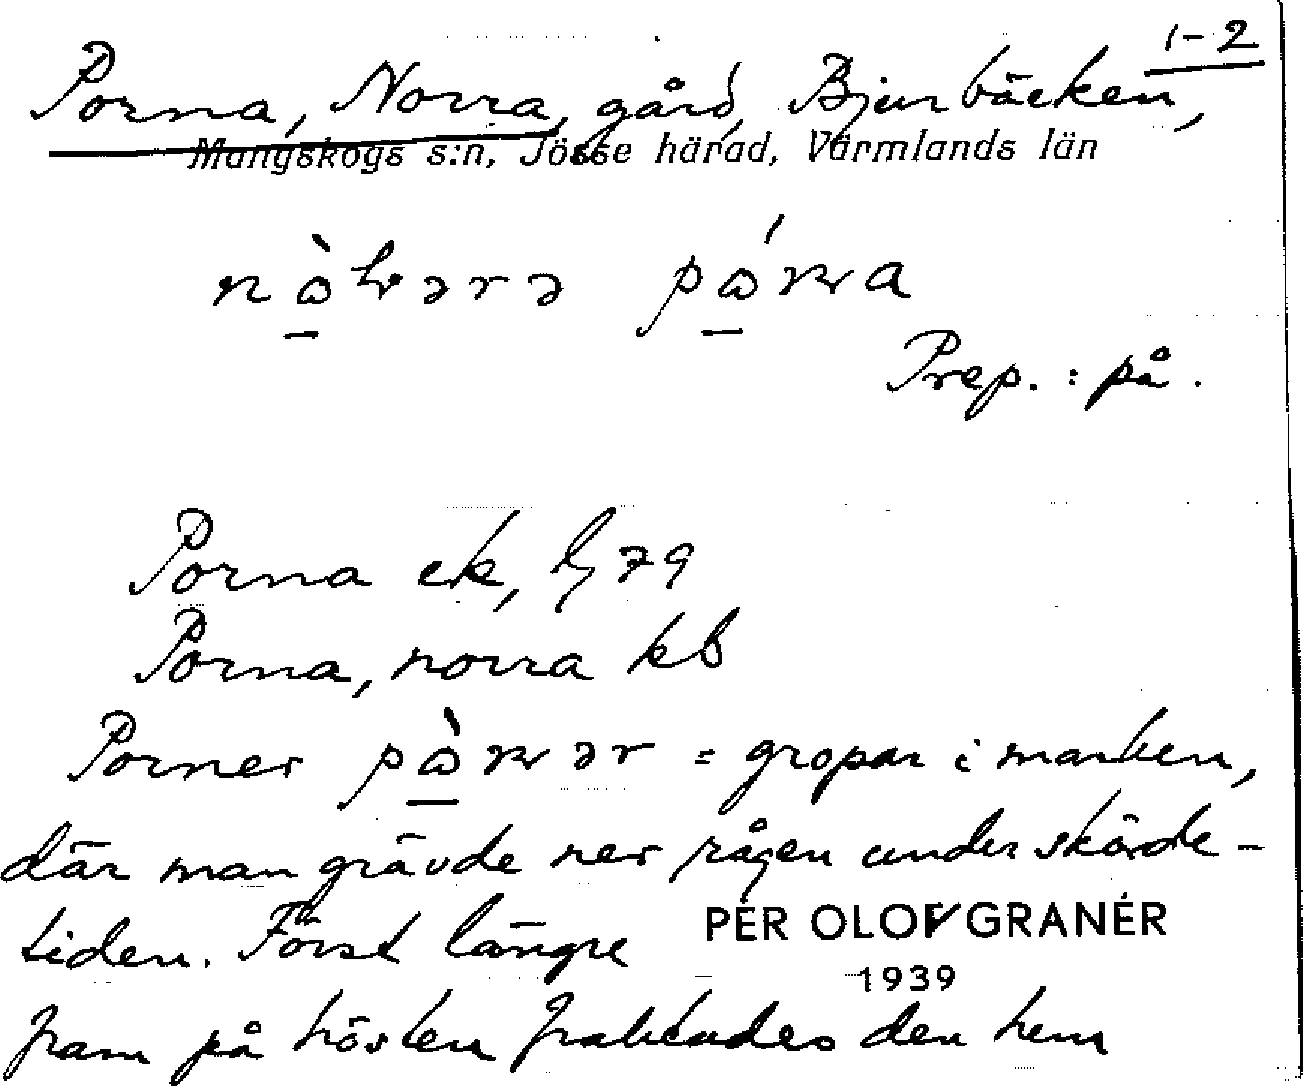 1-2
Porna, Norra, gård, Bjurbäcken,
Mangskogs s:n, Jösse härad, Värmlands län
Prep. : på.
Porna ek, lj 79
Porna, norra kb
Porner = gropar i marken,
där man grävde ner rågen under skörde-
tiden. Först längre
PER OLOF GRANÉR
1939
fram på hösten fraktades den hem